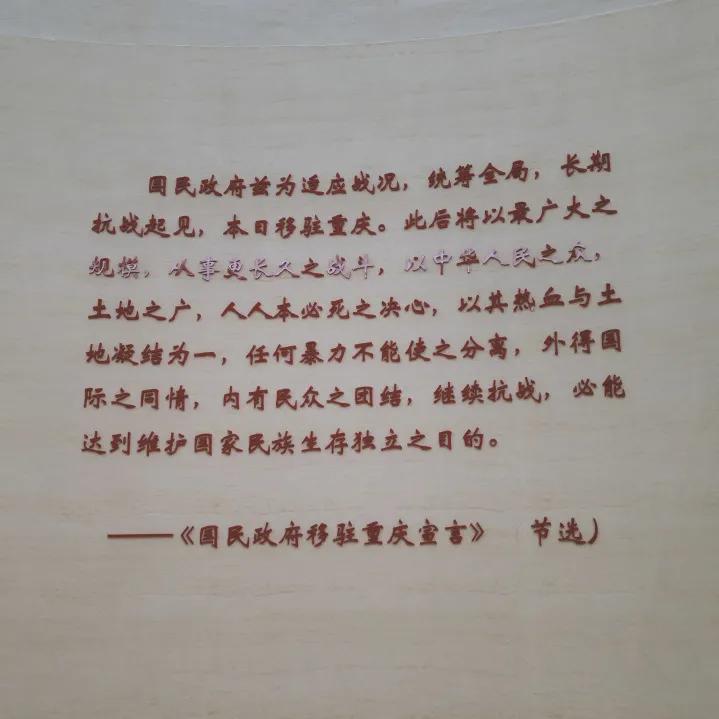 国民政府兹为适应战况，统筹全局，长期
抗战起见，本日移驻重庆。此后将以最广大之
规模，从事更长久之战斗，以中华人民之众，
土地之广，人人本必死之决心，以其热血与土
地凝结为一，任何暴力不能使之分离，外得国
际之同情，内有民众之团结，继续抗战，必能
达到维护国家民族生存独立之目的。
——《国民政府移驻重庆宣言》 节选）